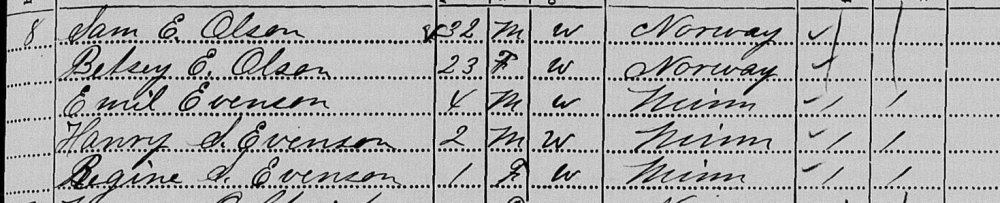 8 Sam E. Olson 32 M W Norway
Betsey E. Olson 23 F W Norway
Emil Evenson 4 M W Minn 1 1
Hanry S. Evenson 2 M W Minn 1 1
Regine S. Evenson 1 F W Minn 1 1